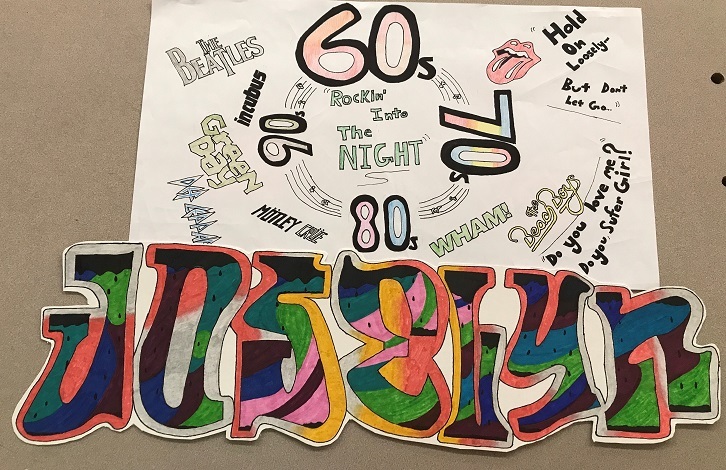 THE
BEATLES
60s
Hold
On
Loosely...
But Don't
Let Go..."
incubus
"Rockin'
Into
The
NIGHT"
70s
90s
Green
Day
Do you love me?
Do You, Sufer Girl!
The
Beach Boys
MÖTLEY CRÜE
80s
WHAM!
JOSELYN